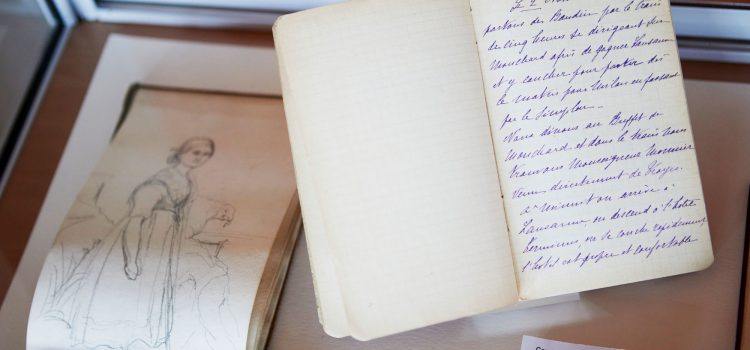 Le 2
partons des Baudin par le train
de cinq heures se dirigeant sur
Mouchard afin de gagner Lausanne
et y coucher pour partir dès
le matin pour Milan en passant
par le Simplon.
Nous dînons au Buffet de
Mouchard et dans le train nous
trouvons Monseigneur Monnier
venu directement de Troyes.
à minuit on arrive à
Lausanne, on descend à l'hôtel
Terminus, on se couche rapidement,
l'hôtel est propre et confortable